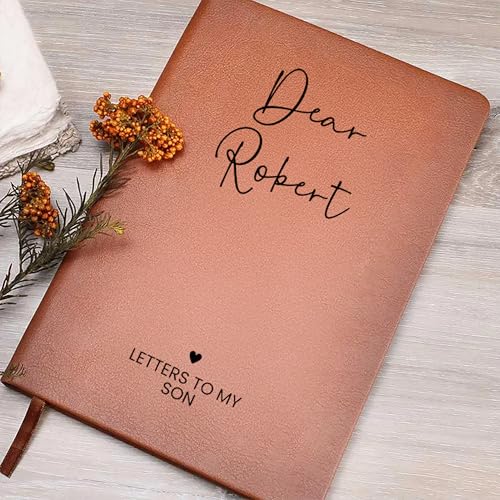 Dear
Robert
LETTERS TO MY
SON